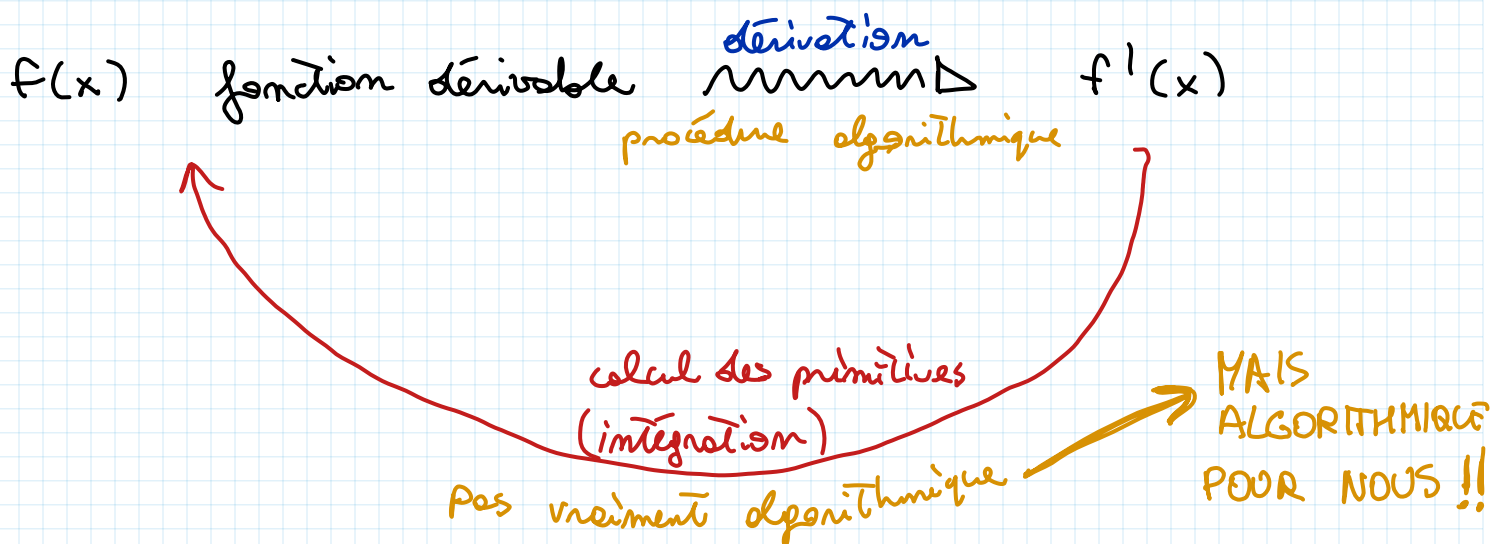 dérivation
f(x) fonction dérivable f'(x)
procédure algorithmique
calcul des primitives
(intégration)
pas vraiment algorithmique
MAIS
ALGORITHMIQUE
POUR NOUS !!